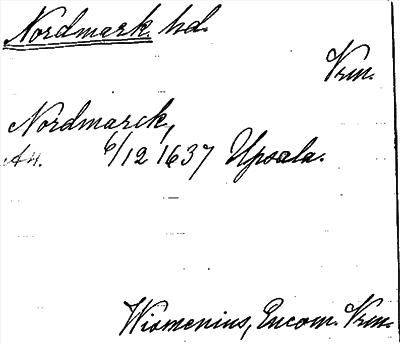 Nordmark hd.
Vrm.
Nordmarck,
An. 6/12 1637 Upsala.
Wiomenius, Encom. Vrm.